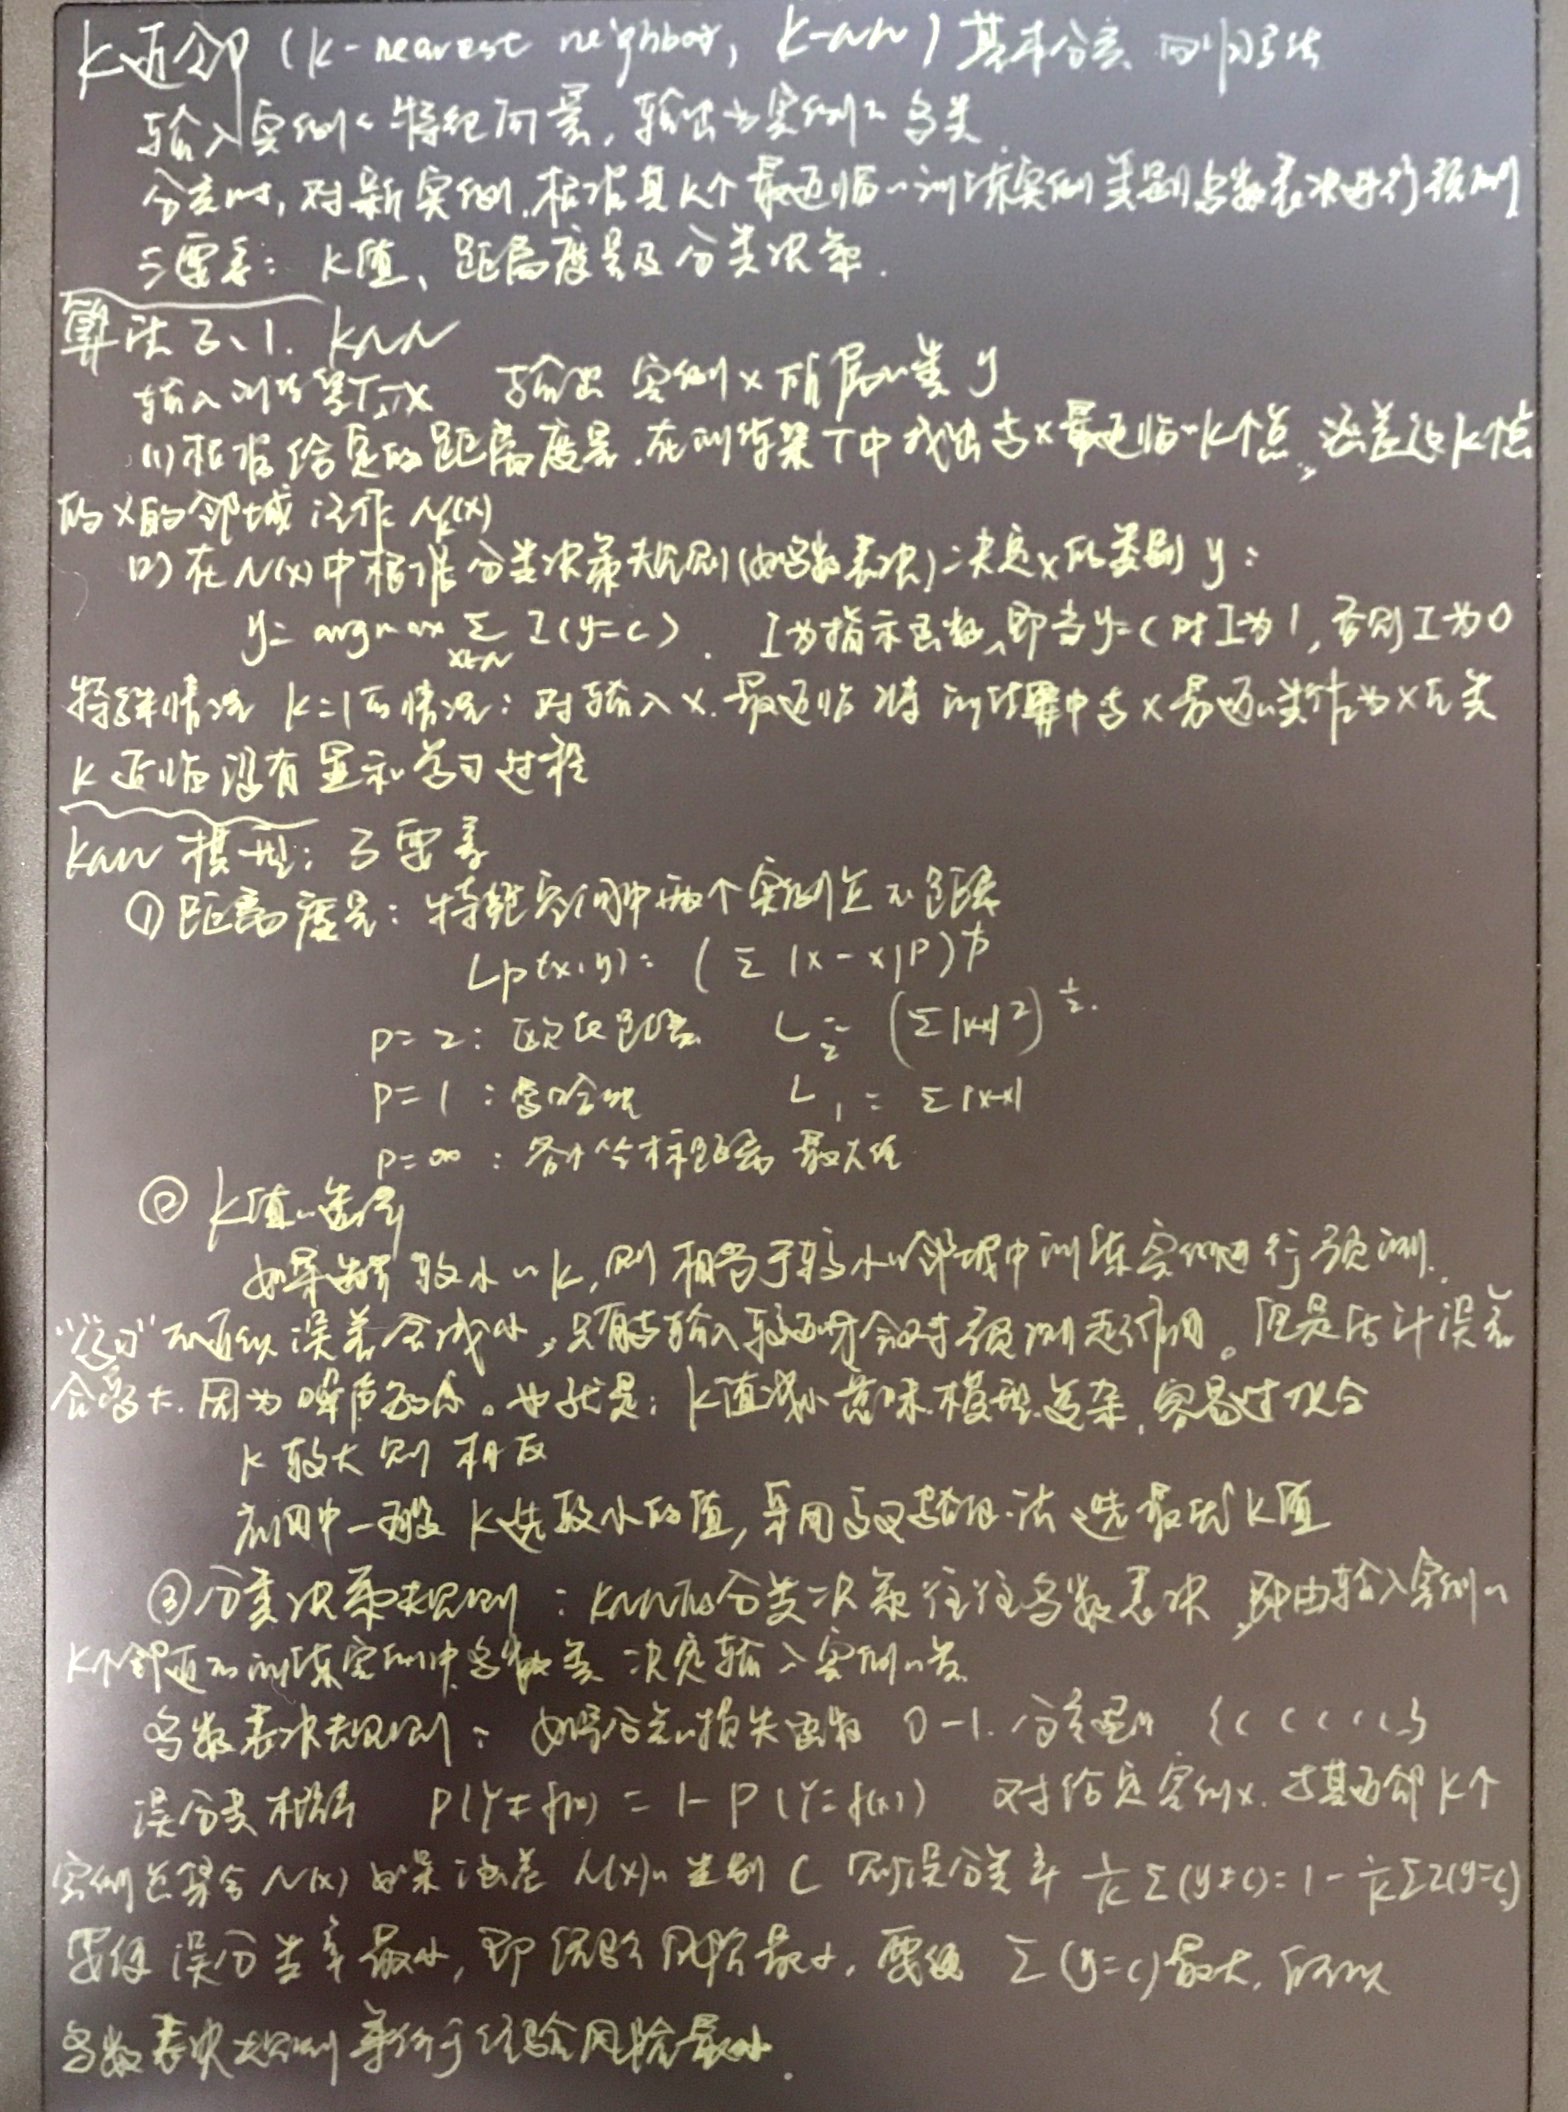 K近邻 (k-nearest neighbor, k-nn) 基本分类回归方法
输入实例的特征向量, 输出为实例的多类.
分类时, 对新实例, 根据其K个最近临的训练实例类别多数表决进行预测
三要素: K值、距离度量及分类决策.
算法3.1. knn
输入训练集T, x 输出实例x所属的类 y
(1) 根据给定的距离度量, 在训练集T中找出与x最近临的K个点, 涵盖这K个点
的x的邻域记作 Nk(x)
(2) 在N(x)中根据分类决策规则(如多数表决)决定x的类别 y:
y= argmax Σ I(y=c). I为指示函数, 即当y=c时I为1, 否则I为0
x∈N
特殊情况 K=1的情况: 对输入x. 最近临将训练集中与x最近的类作为x的类
K近临没有显式的学习过程
knn模型: 3要素
① 距离度量: 特征空间中两个实例点的距离
Lp(x,y): (Σ |x-x|P) 1/p
p=2: 欧氏距离 L2= (Σ|x-x|²)^1/2.
p=1: 曼哈顿 L1= Σ|x-x|
p=∞: 各个坐标距离最大值
② K值的选择
如果选择较小的K, 则相当于较小的邻域中训练实例进行预测.
“学习”的近似误差会减小, 只有与输入较近的才会对预测起作用。但是估计误差
会增大. 因为噪声。也就是: K值减小意味模型复杂, 容易过拟合
K较大则相反
应用中一般K选较小的值, 采用交叉验证法选最优K值
③ 分类决策规则: knn的分类决策往往多数表决, 即由输入实例的
K个邻近的训练实例中多数类决定输入实例的类
多数表决规则: 如果分类的损失函数 0-1. 分类函数
误分类概率 P(Y≠f(x)) = 1-P(Y=f(x)) 对给定实例x. 其近邻K个
实例点集合N(x) 如果涵盖N(x)的类别C 则误分类率 1/k Σ(y≠c)=1-1/k ΣI(y=c)
要使误分类率最小, 即经验风险最小, 要使 Σ(y=c)最大, 所以
多数表决规则等价于经验风险最小.